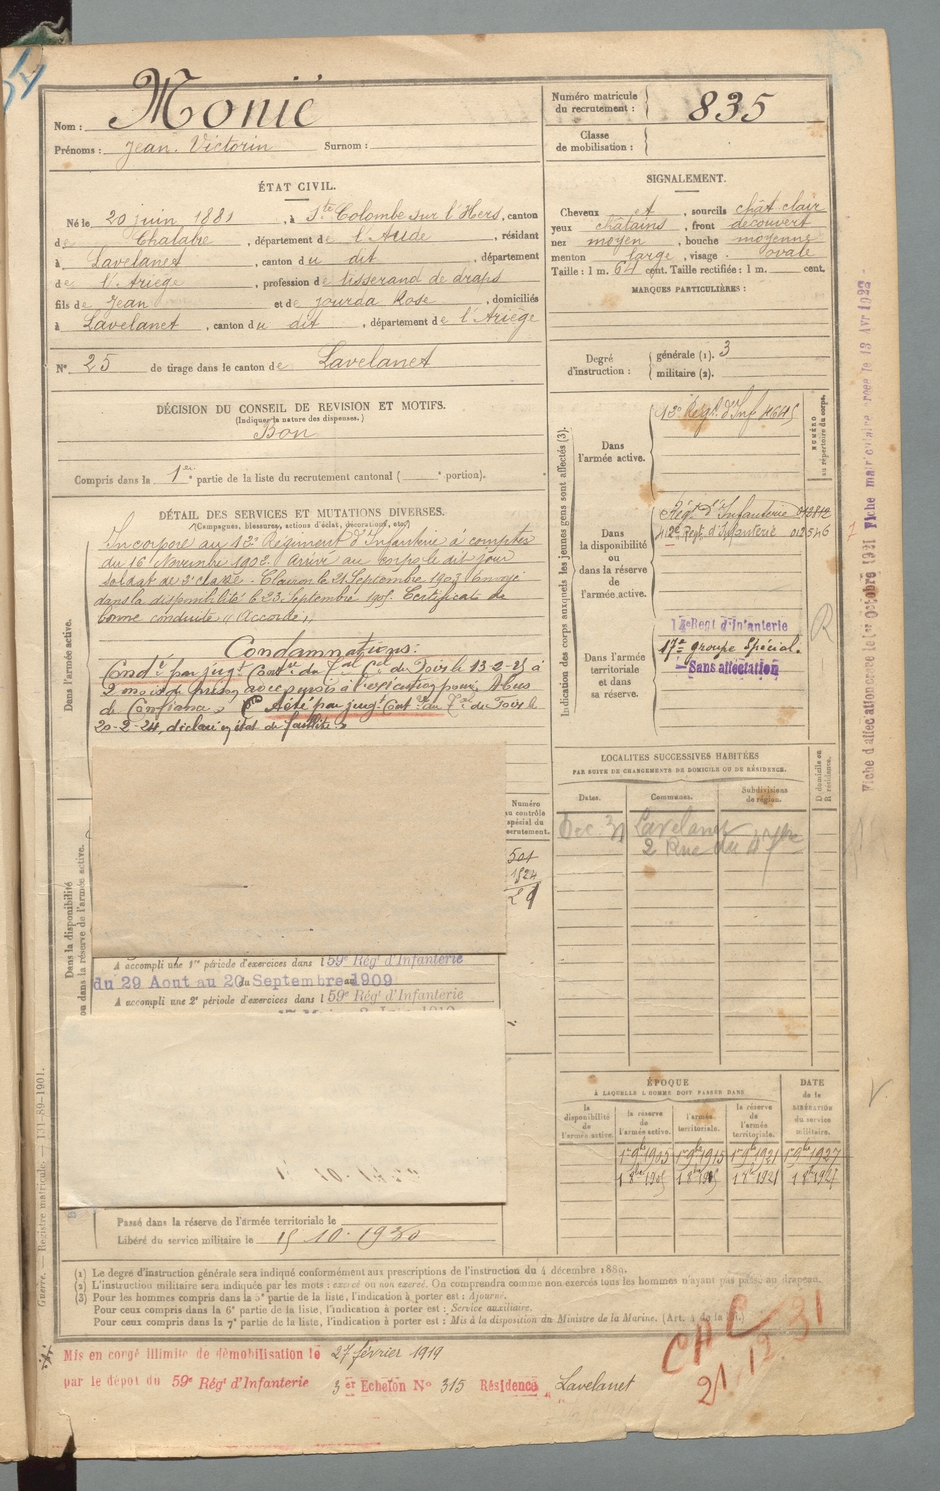 Nom : Monié
Prénoms : Jean Victorin Surnom :
Numéro matricule du recrutement : 835
Classe de mobilisation :
ÉTAT CIVIL.
Né le 20 juin 1881, à Ste Colombe sur l'Hers, canton
de Chalabre, département de l'Aude, résidant
à Lavelanet, canton du dit, département
de l'Ariège, profession de tisserand de draps
fils de Jean et de Jourda Rose, domiciliés
à Lavelanet, canton du dit, département de l'Ariège
N° 25 de tirage dans le canton de Lavelanet
SIGNALEMENT.
Cheveux et, sourcils chât clair
yeux chatains, front découvert
nez moyen, bouche moyenne
menton large, visage ovale
Taille : 1 m. 64 cent. Taille rectifiée : 1 m. cent.
MARQUES PARTICULIÈRES :
Degré d'instruction : générale (1). 3
militaire (2).
DÉCISION DU CONSEIL DE REVISION ET MOTIFS.
(Indiquer la nature des dispenses.)
Bon
Compris dans la 1re partie de la liste du recrutement cantonal ( portion).
DÉTAIL DES SERVICES ET MUTATIONS DIVERSES.
(Campagnes, blessures, actions d'éclat, décorations, etc.)
Dans l'armée active.
Incorporé au 12e Régiment d'Infanterie à compter
du 16 Novembre 1902. arrivé au corps le dit jour
soldat de 2e classe. Clairon le 21 Septembre 1903. Envoyé
dans la disponibilité le 23 Septembre 1905. Certificat de
bonne conduite "Accordé"
Condamnations :
Condé par jugt Contre du Tal Cel de Foix le 13-2-25 à
2 mois de prison avec sursis à l'exécution pour Abus
de Confiance. A été par jugt Cont du Tal de Foix le
20-2-24, déclaré en état de faillite
Dans la disponibilité ou dans la réserve de l'armée active.
Numéro au contrôle spécial du recrutement.
501
1524
29
A accompli une 1re période d'exercices dans l 59e Régt d'Infanterie
du 29 Aout au 20 Septembre 1909
A accompli une 2e période d'exercices dans l 59e Régt d'Infanterie
Passé dans la réserve de l'armée territoriale le
Libéré du service militaire le 15 10. 1930
Indication des corps auxquels les jeunes gens sont affectés (3).
NUMÉRO au répertoire du corps.
Dans l'armée active.
12e Régt d'Inf 4645
Dans la disponibilité ou dans la réserve de l'armée active.
Régt d'Infanterie
Régt d'Infanterie 012546
Dans l'armée territoriale et dans sa réserve.
Régt d'Infanterie
17e groupe Spécial.
Sans affectation
R
LOCALITÉS SUCCESSIVES HABITÉES
PAR SUITE DE CHANGEMENTS DE DOMICILE OU DE RÉSIDENCE.
Dates. Communes. Subdivisions de région. D. domicile ou R. résidence.
Dec. 31 Lavelanet
2 Rue du
ÉPOQUE
À LAQUELLE L'HOMME DOIT PASSER DANS
DATE de la LIBÉRATION du service militaire.
la disponibilité de l'armée active. la réserve de l'armée active. l'armée territoriale. la réserve de l'armée territoriale.
1er 9bre 1905 1er 9bre 1915 1er 9bre 1921 1er 9bre 1927
1 8bre 1905 1 8bre 1915 1 8bre 1921 1 8bre 1927
(1) Le degré d'instruction générale sera indiqué conformément aux prescriptions de l'instruction du 4 décembre 1889.
(2) L'instruction militaire sera indiquée par les mots : exercé ou non exercé. On comprendra comme non exercés tous les hommes n'ayant pas passé au drapeau.
(3) Pour les hommes compris dans la 5e partie de la liste, l'indication à porter est : Ajourné.
Pour ceux compris dans la 6e partie de la liste, l'indication à porter est : Service auxiliaire.
Pour ceux compris dans la 7e partie de la liste, l'indication à porter est : Mis à la disposition du Ministre de la Marine. (Art. 4 de la loi.)
Guerre. — Registre matricule. — 131-89-1901.
Mis en congé illimité de démobilisation le 27 février 1919
par le dépot du 59e Régt d'Infanterie 3er Echelon N° 315 Résidence Lavelanet
CAC
21.12.31
Fiche d'affectation créée le 1er Octobre 1921 Fiche matriculaire créée le 13 Avr 1922